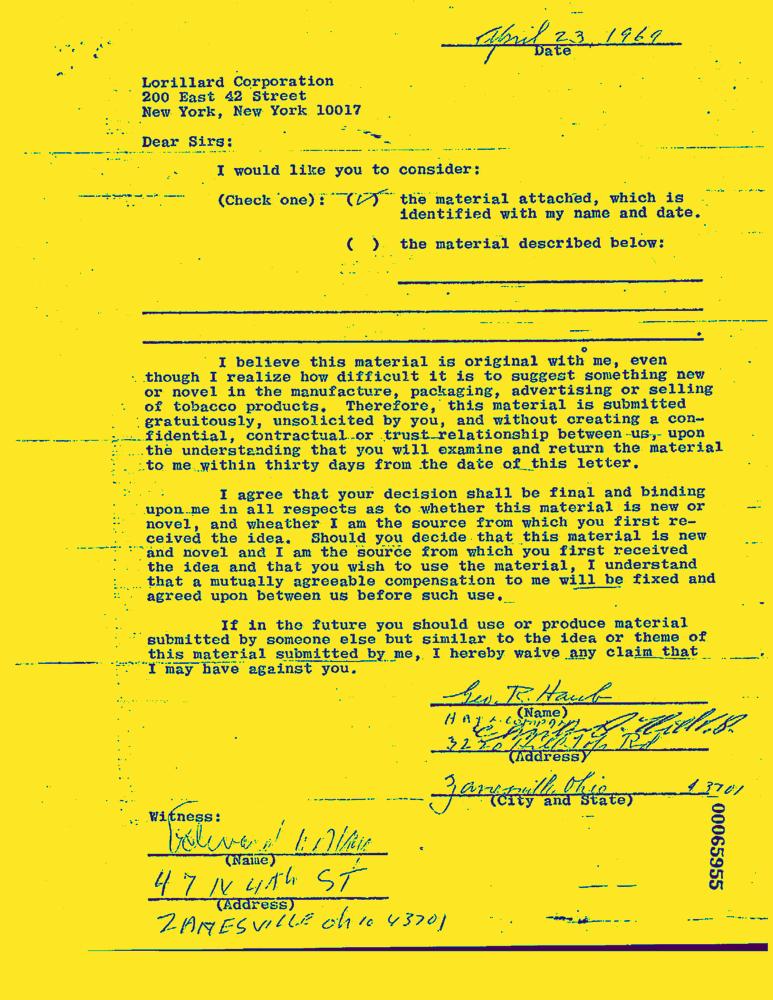 April 23, 1969
Date
Lorillard Corporation
200 East 42 Street
New York, New York 10017
Dear Sirs:
I would like you to consider:
(Check one): (✓) the material attached, which is
identified with my name and date.
( ) the material described below:
I believe this material is original with me, even
though I realize how difficult it is to suggest something new
or novel in the manufacture, packaging, advertising or selling
of tobacco products. Therefore, this material is submitted
gratuitously, unsolicited by you, and without creating a con-
fidential, contractual or trust relationship between us, upon
the understanding that you will examine and return the material
to me within thirty days from the date of this letter.
I agree that your decision shall be final and binding
upon me in all respects as to whether this material is new or
novel, and wheather I am the source from which you first re-
ceived the idea. Should you decide that this material is new
and novel and I am the source from which you first received
the idea and that you wish to use the material, I understand
that a mutually agreeable compensation to me will be fixed and
agreed upon between us before such use.
If in the future you should use or produce material
submitted by someone else but similar to the idea or theme of
this material submitted by me, I hereby waive any claim that
I may have against you.
Geo. R. Haub
(Name)
Rd
(Address)
Zanesville, Ohio 43701
(City and State)
Witness:
(Name)
47 N 4th ST
(Address)
ZANESVILLE Ohio 43701
00065955